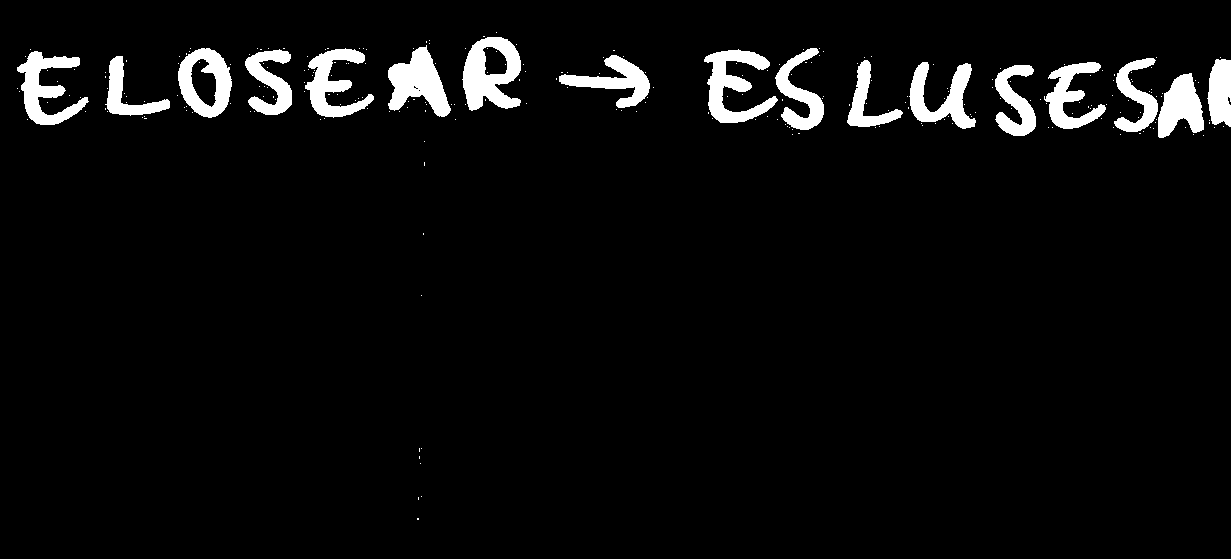 ELOSEAR → ESLUSESAR